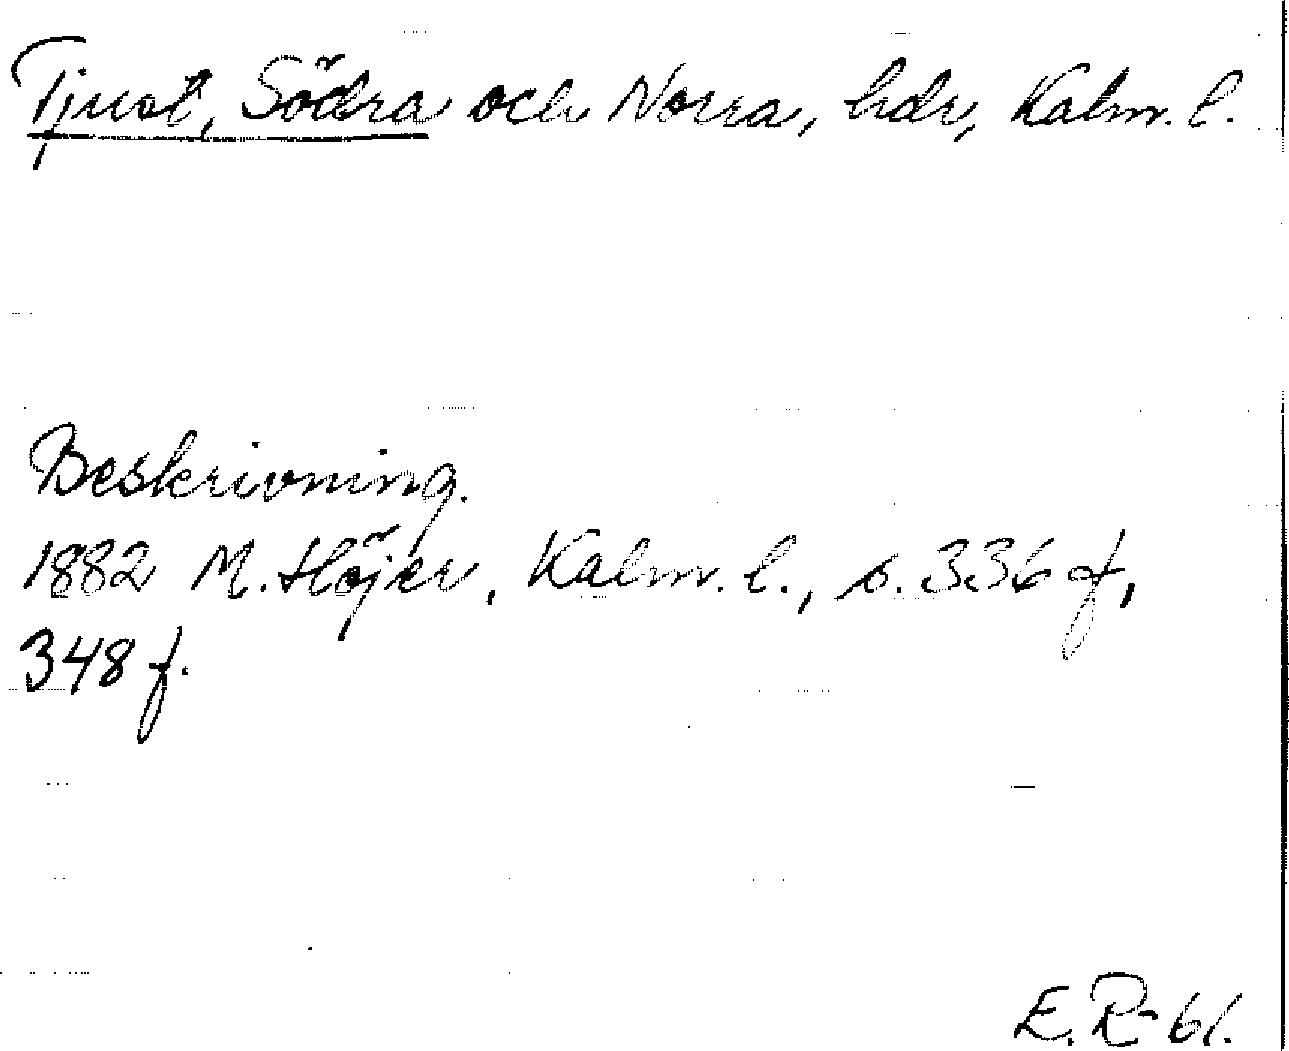 Tjust, Södra och Norra, hdr, Kalm. l.
Beskrivning.
1882 M. Höjer, Kalm. l., s. 336 f,
348 f.
E. R-61.